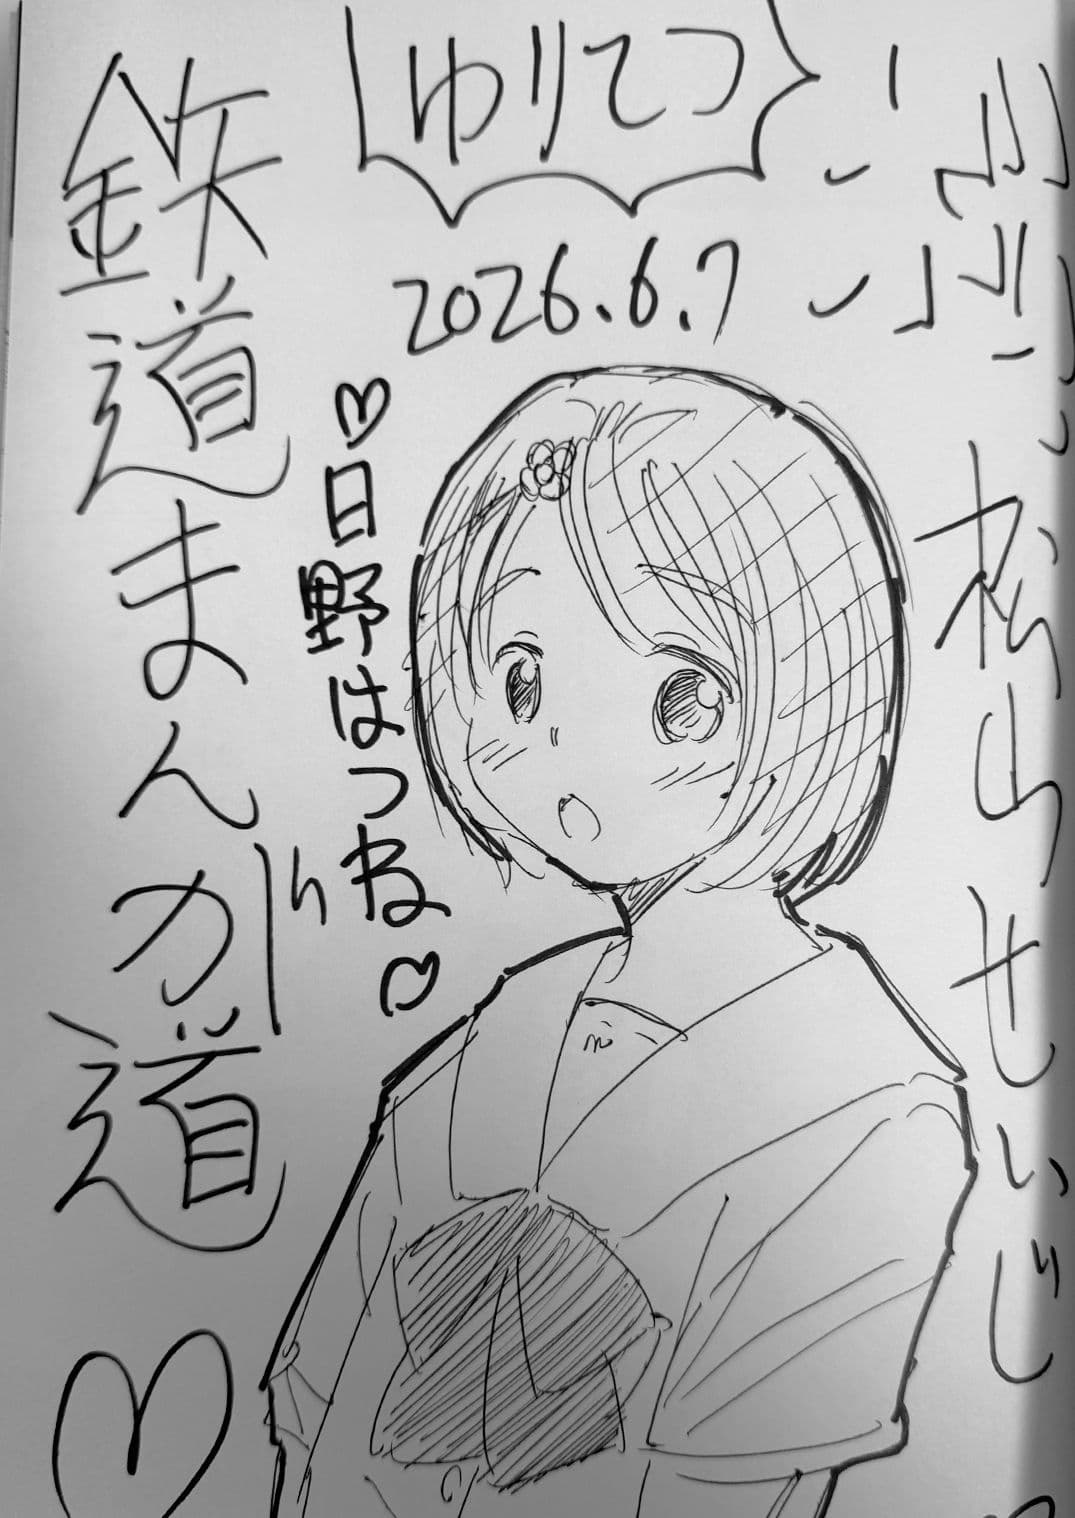 ゆりてつ
2026.6.7
松山せいじ
♡日野はつね♡
鉄道まんが道